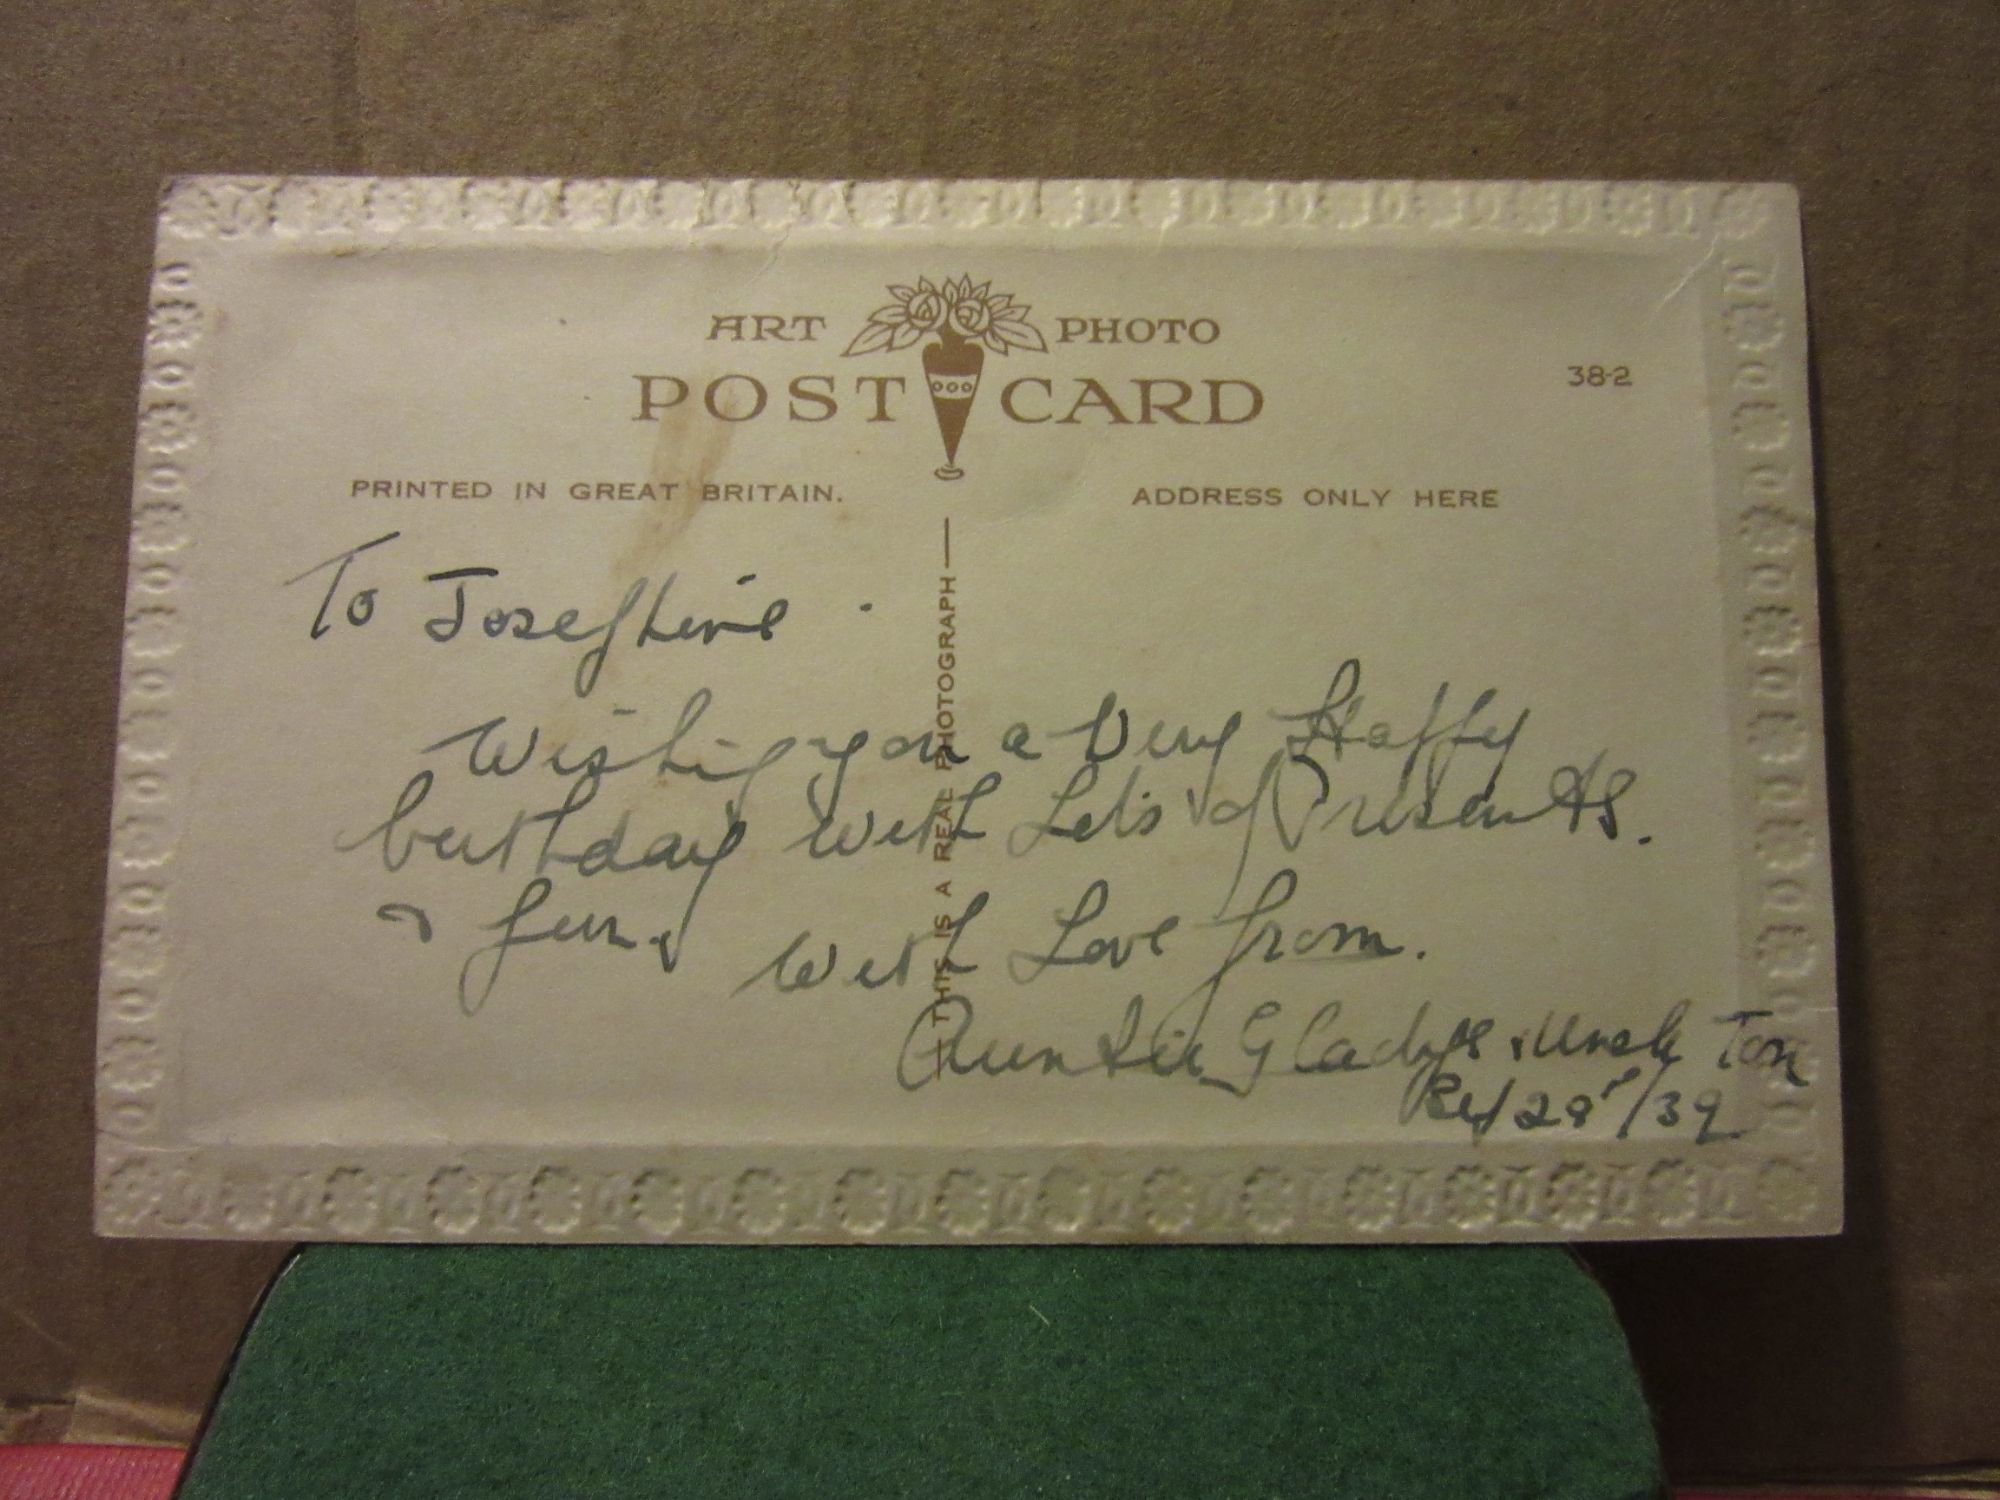 ART PHOTO
POST CARD
38-2
PRINTED IN GREAT BRITAIN.
ADDRESS ONLY HERE
THIS IS A REAL PHOTOGRAPH
To Josephine.
Wishing you a Very Happy
birthday with Lots of Presents.
& fun. With Love from.
Auntie Gladys & Uncle Tom
28th/39